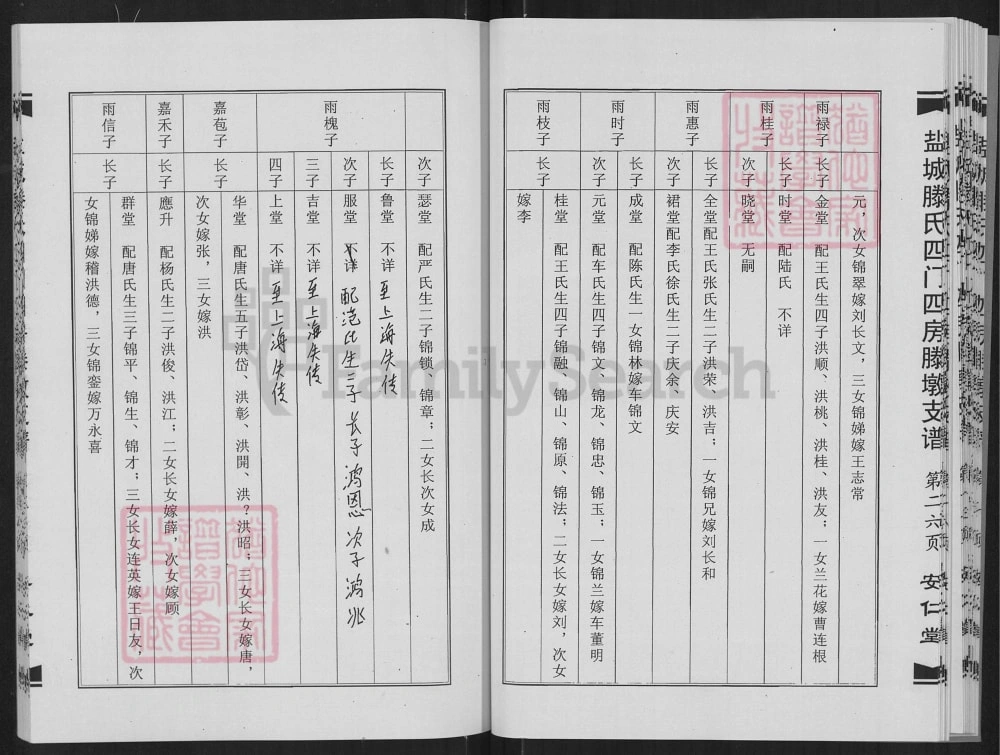 盐城滕氏四门四房滕墩支谱
第二六页
安仁堂
元，次女锦翠嫁刘长文，三女锦娣嫁王志常
雨禄子 长子 金堂 配王氏生四子洪顺、洪桃、洪桂、洪友；一女兰花嫁曹连根
雨桂子 长子 时堂 配陆氏 不详
次子 晓堂 无嗣
雨惠子 长子 全堂 配王氏张氏生二子洪荣、洪吉；一女锦兄嫁刘长和
次子 裙堂 配李氏徐氏生二子庆余、庆安
雨时子 长子 成堂 配陈氏生一女锦林嫁车锦文
次子 元堂 配车氏生四子锦文、锦龙、锦忠、锦玉；一女锦兰嫁车董明
雨枝子 长子 桂堂 配王氏生四子锦融、锦山、锦原、锦法；二女长女嫁刘，次女
嫁李
次子 瑟堂 配严氏生二子锦锁、锦章；二女长次女成
雨槐子 长子 鲁堂 不详 至上海失传
次子 服堂 不详 配范氏生二子 长子鸿恩 次子鸿兆
三子 吉堂 不详 至上海失传
四子 上堂 不详 至上海失传
嘉苞子 长子 华堂 配唐氏生五子洪岱、洪彰、洪開、洪？洪昭；三女长女嫁唐，
次女嫁张，三女嫁洪
嘉禾子 长子 應升 配杨氏生二子洪俊、洪江；二女长女嫁薛，次女嫁顾
雨信子 长子 群堂 配唐氏生三子锦平、锦生、锦才；三女长女连英嫁王日友，次
女锦娣嫁稽洪德，三女锦銮嫁万永喜
FamilySearch